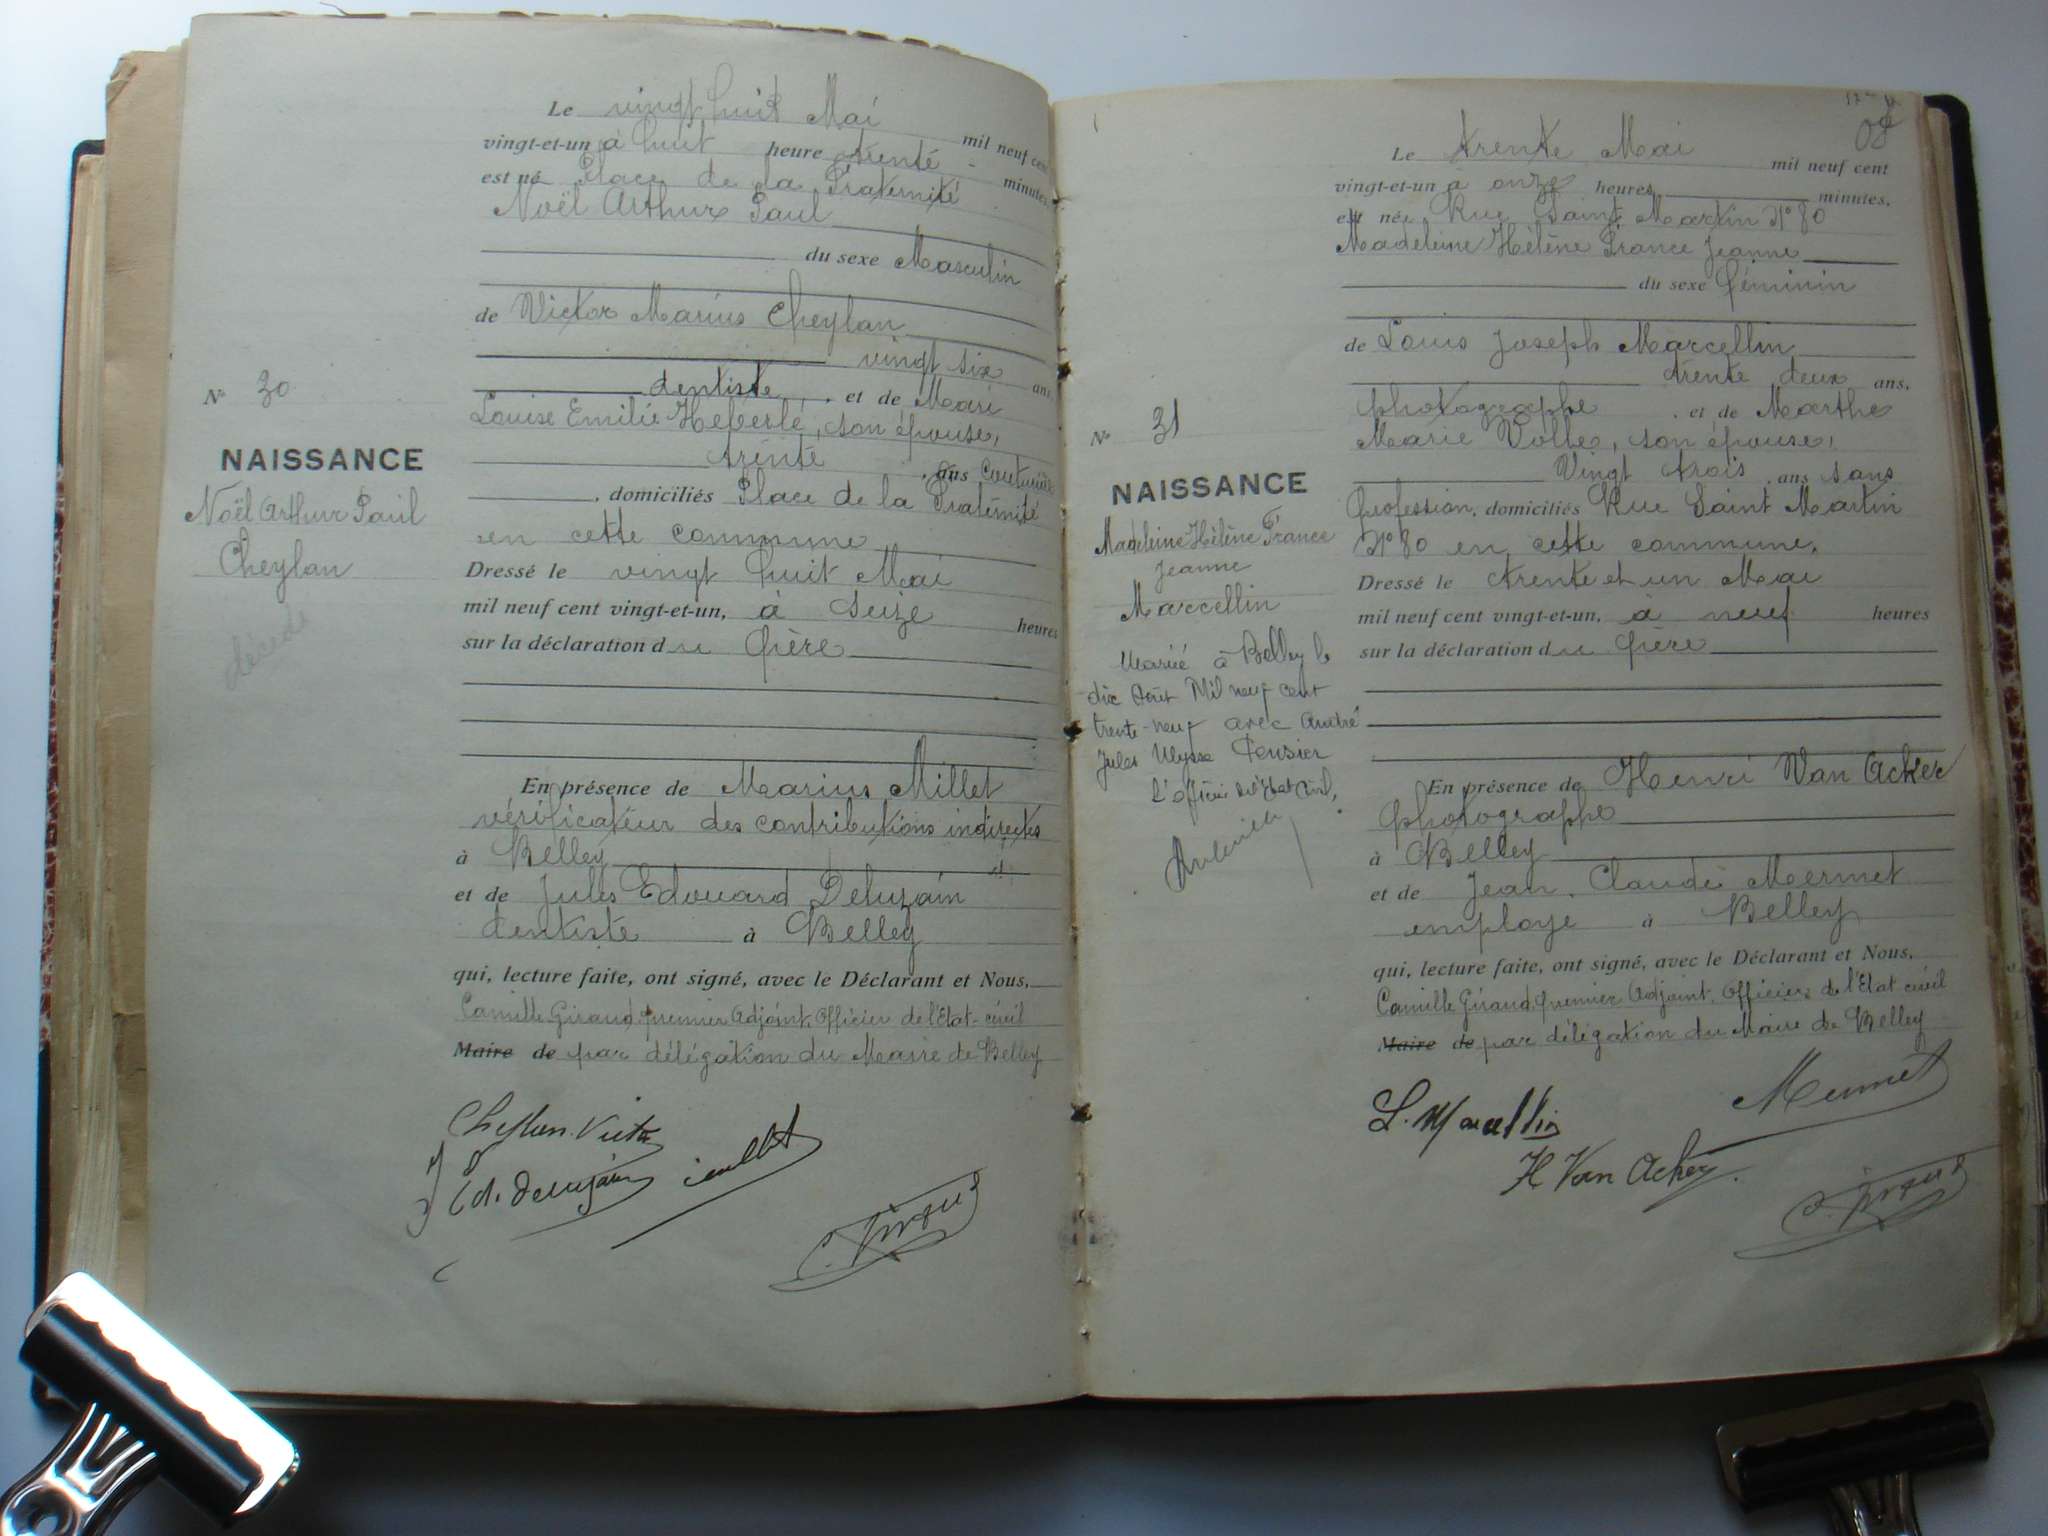 Le vingt huit Mai mil neuf cent
vingt-et-un à huit heure trente - minutes,
est né Place de la Fraternité
Noël Arthur Paul
du sexe Masculin
de Victor Marius Cheylan
vingt six ans,
dentiste, et de Mari
Louise Emilie Heberlé, son épouse,
trente, ans couturière
, domiciliés Place de la Fraternité
en cette commune
Dressé le vingt huit Mai
mil neuf cent vingt-et-un, à seize heures
sur la déclaration du Père
En présence de Marius Millet
vérificateur des contributions indirectes
à Belley
et de Jules Edouard Deluzain
dentiste à Belley
qui, lecture faite, ont signé, avec le Déclarant et Nous,
Camille Giraud premier Adjoint, Officier de l'Etat-civil
Maire de par délégation du Maire de Belley
Cheylan Victor
C. Giraud
N° 30
NAISSANCE
Noël Arthur Paul
Cheylan
décédé
08
Le trente Mai mil neuf cent
vingt-et-un à onze heures minutes,
est née Rue Saint Martin N° 80
Madeleine Hélène France Jeanne
du sexe féminin
de Louis Joseph Marcellin
trente deux ans,
photographe, et de Marthe
Marie Volle, son épouse,
Vingt trois, ans sans
Profession, domiciliés Rue Saint Martin
N° 80 en cette commune,
Dressé le trente et un Mai
mil neuf cent vingt-et-un, à neuf heures
sur la déclaration du Père
En présence de Henri Van Acker
photographe
à Belley
et de Jean Claude Mermet
employé à Belley
qui, lecture faite, ont signé, avec le Déclarant et Nous,
Camille Giraud, premier Adjoint, Officier de l'Etat civil
Maire de par délégation du Maire de Belley
L. Marcellin
Mermet
H Van Acker
C. Giraud
N° 31
NAISSANCE
Madeleine Hélène France
Jeanne
Marcellin
Mariée à Belley le
dix Août Mil neuf cent
trente-neuf avec André
Jules Ulysse
L'officier de l'Etat Civil,